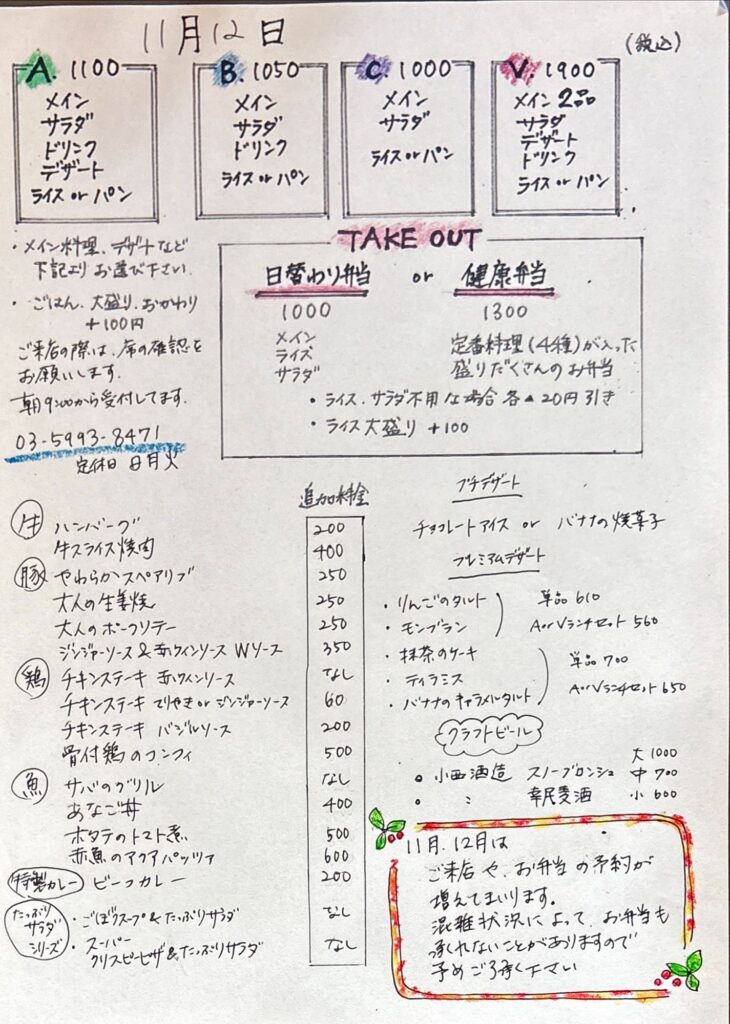 11月12日
(税込)
A. 1100
メイン
サラダ
ドリンク
デザート
ライス or パン
B. 1050
メイン
サラダ
ドリンク
ライス or パン
C. 1000
メイン
サラダ
ライス or パン
V. 1900
メイン 2品
サラダ
デザート
ドリンク
ライス or パン
・メイン料理、デザートなど
下記より お選び下さい.
・ごはん、大盛り、おかわり
+100円
ご来店の際は、席の確認を
お願いします.
朝9:00から受付してます.
03-5993-8471
定休日 日月火
TAKE OUT
日替わり弁当 or 健康弁当
1000
メイン
ライス
サラダ
1300
定番料理(4種)が入った
盛りだくさんのお弁当
・ライス、サラダ不用な場合 各▲20円引き
・ライス大盛り +100
追加料金
牛 ハンバーグ 200
牛スライス焼肉 400
豚 やわらかスペアリブ 250
大人の生姜焼 250
大人のポークソテー 250
ジンジャーソース&赤ワインソース Wソース 350
鶏 チキンステーキ 赤ワインソース なし
チキンステーキ てりやき or ジンジャーソース 60
チキンステーキ バジルソース 200
骨付鶏のコンフィ 500
魚 サバのグリル なし
あなご丼 400
ホタテのトマト煮 500
赤魚のアクアパッツァ 600
特製カレー ビーフカレー 200
たっぷりサラダシリーズ ・ごぼうスープ&たっぷりサラダ なし
・スーパー
クリスピーピザ&たっぷりサラダ なし
プチデザート
チョコレートアイス or バナナの焼菓子
プレミアムデザート
・りんごのタルト
・モンブラン
単品 610
A or Vランチセット 560
・抹茶のケーキ
・ティラミス
・バナナのキャラメルタルト
単品 700
A or Vランチセット 650
クラフトビール
大 1000
小西酒造 スノーブロンシュ 中 700
〃 幸民麦酒 小 600
11月、12月は
ご来店や、お弁当の予約が
増えてまいります。
混雑状況によって、お弁当も
承れないことがありますので
予めご了承下さい